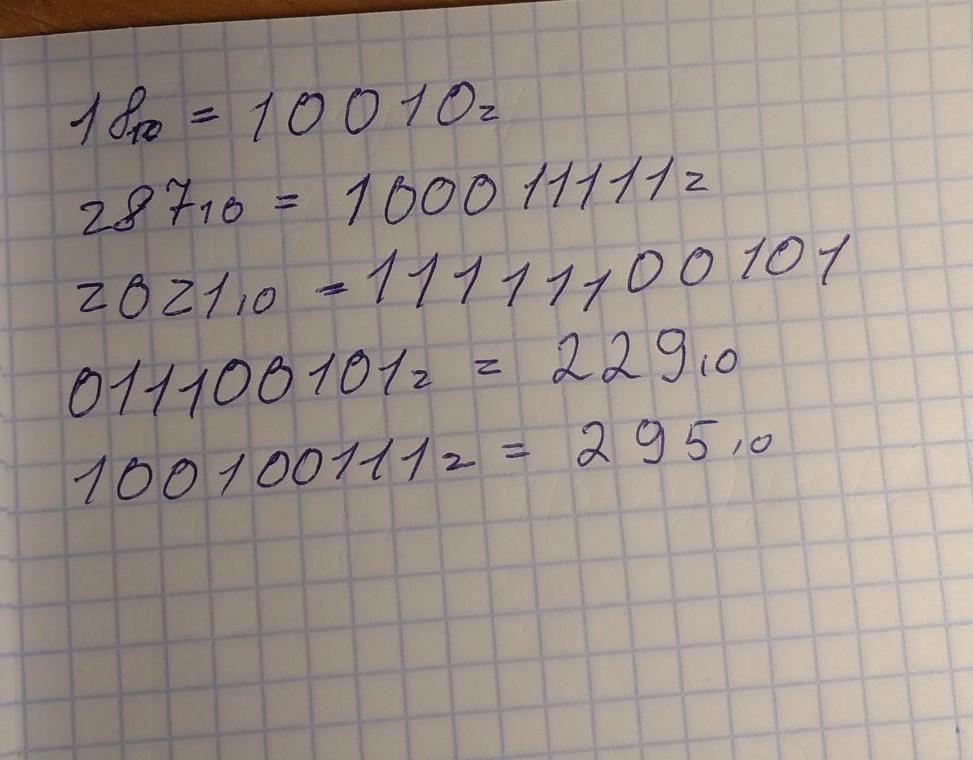 18₁₀ = 10010₂
287₁₀ = 100011111₂
2021₁₀ = 11111100101
011100101₂ = 229₁₀
100100111₂ = 295₁₀